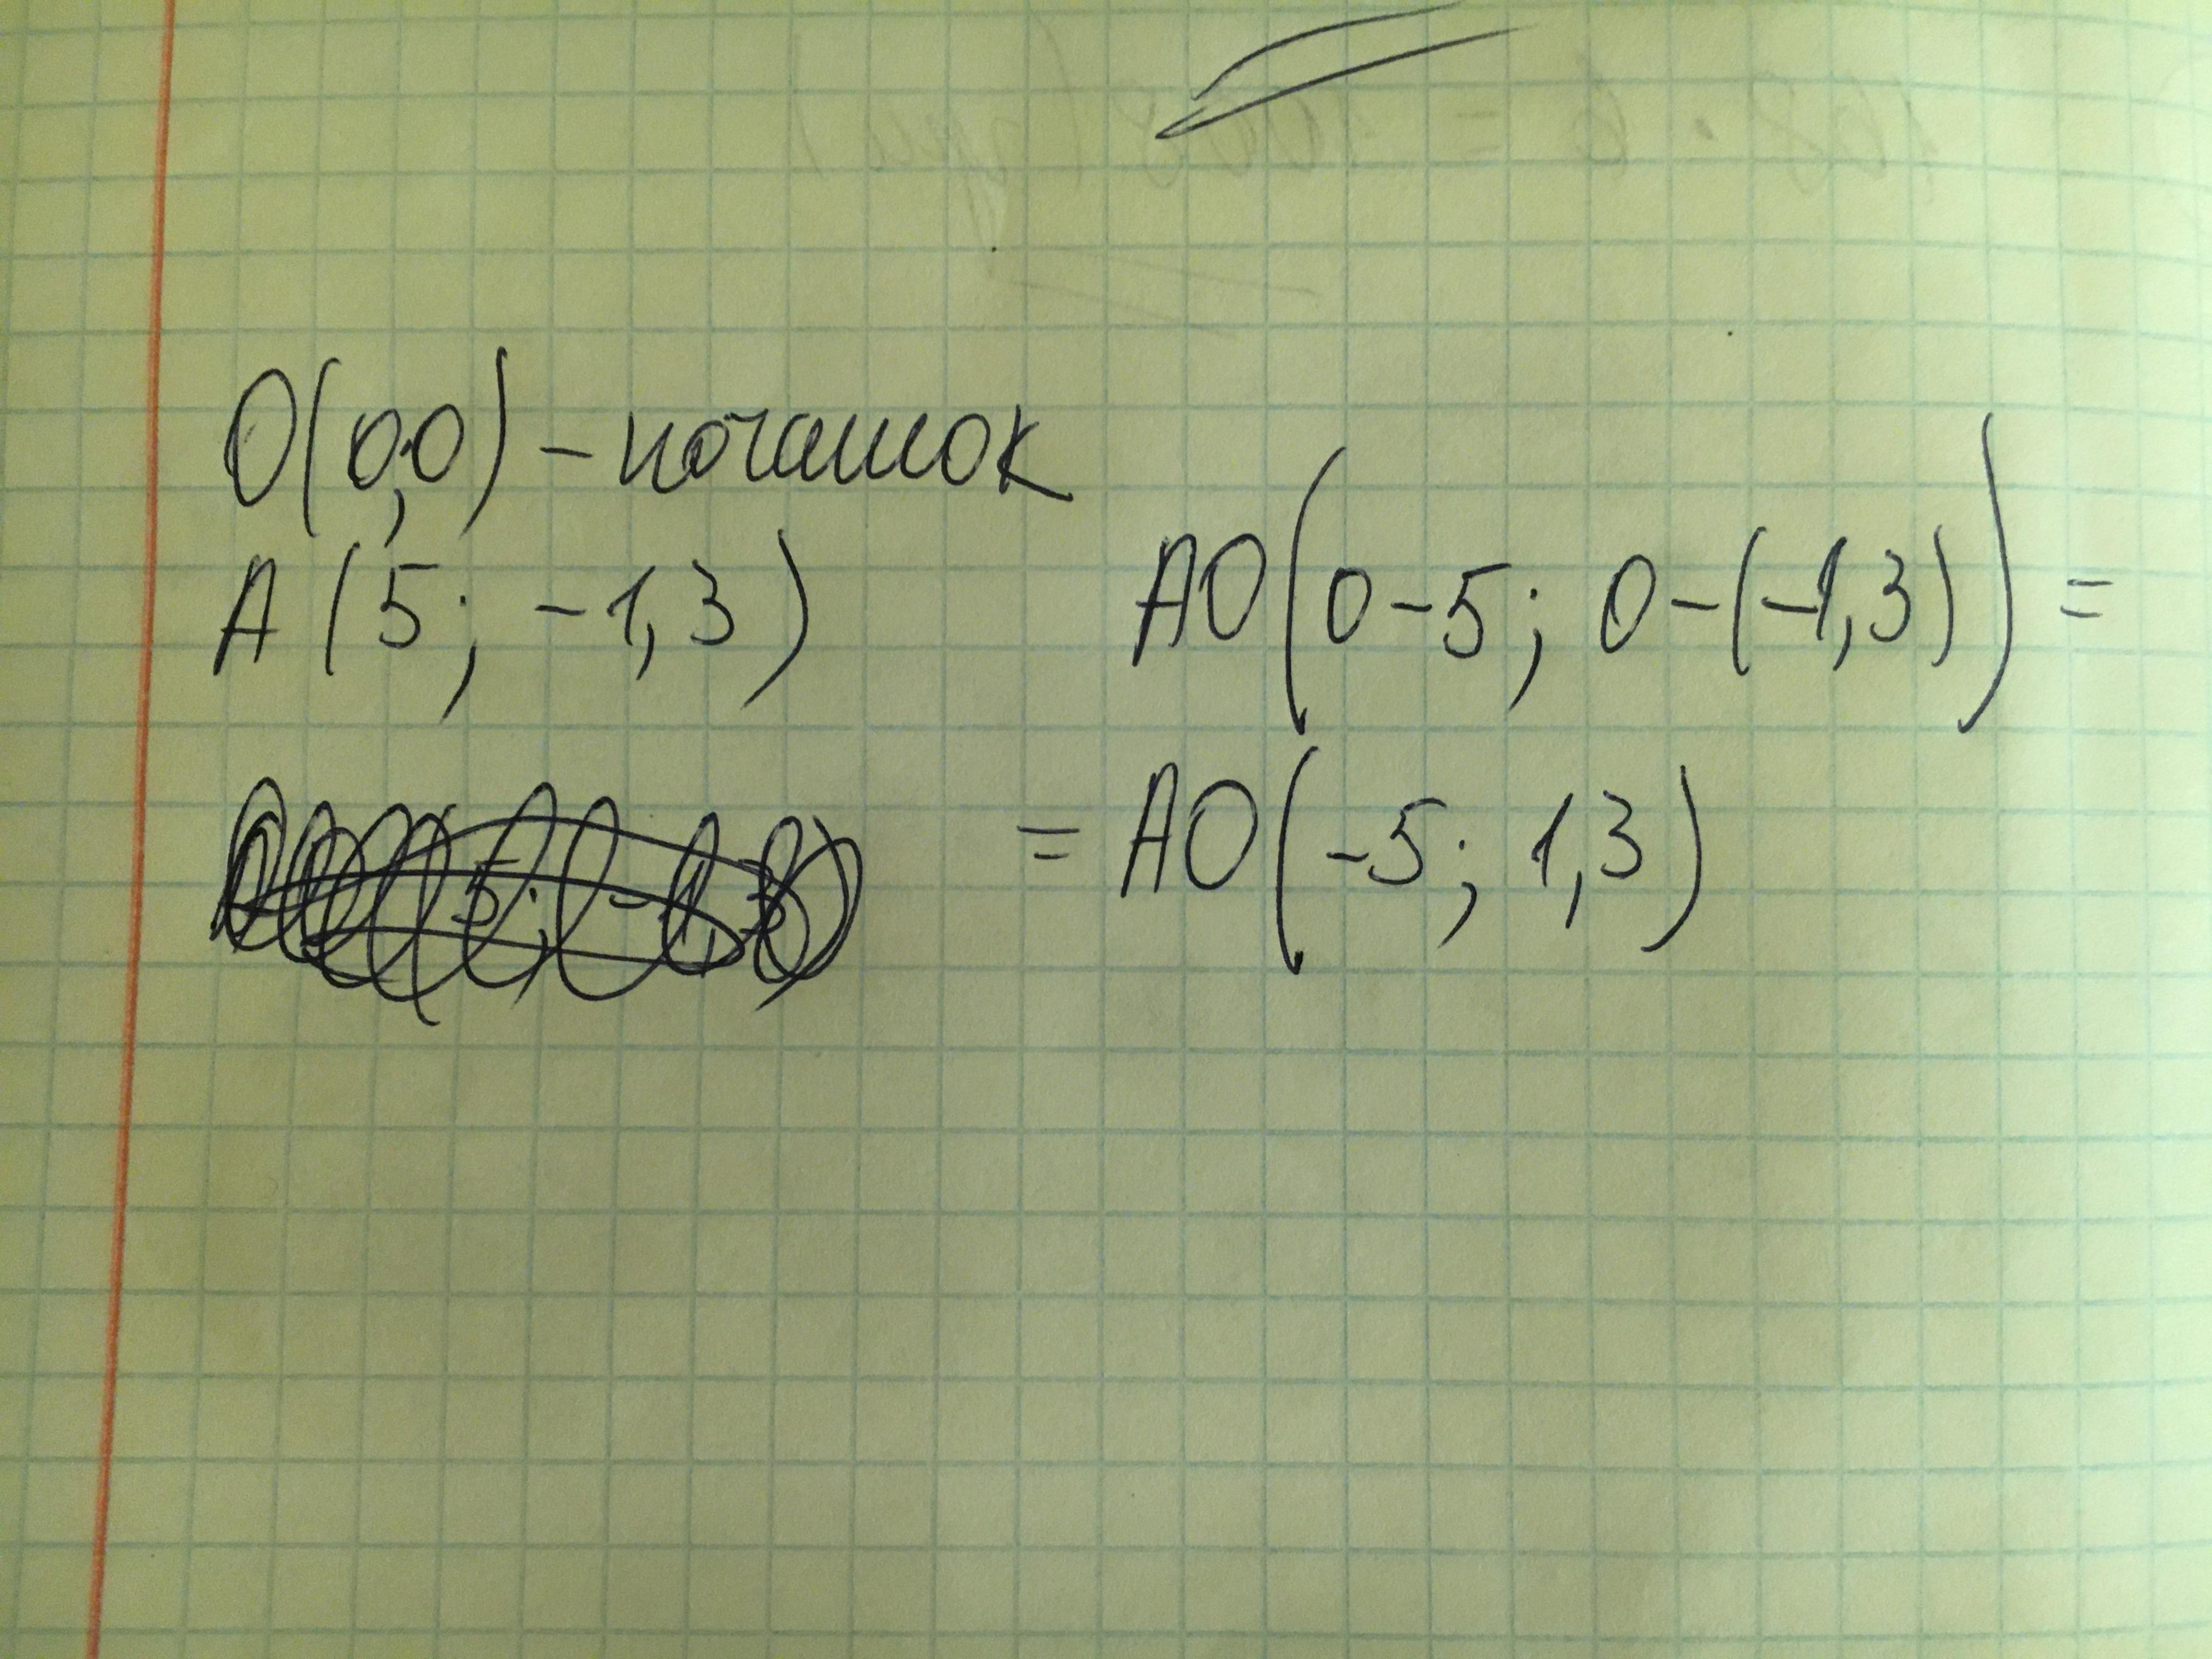 O(0,0) – початок
A(5; -1,3)
AO(0-5; 0-(-1,3)) =
= AO(-5; 1,3)